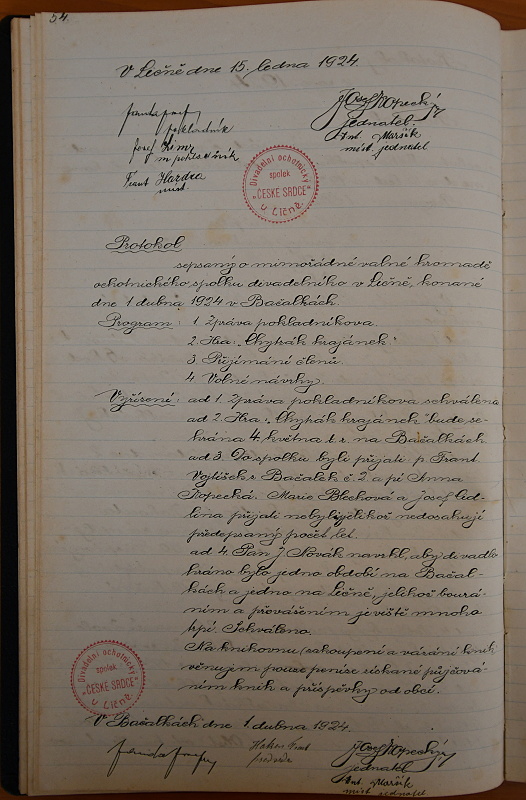 54.
V Ličně dne 15. ledna 1924.
pokladník
Josef
Frant Hardea
míst.
Josef Kopecký
jednatel.
Ant. Maršík
míst. jednatel
Divadelní ochotnický
spolek
„ČESKÉ SRDCE"
v Ličně.
Protokol
sepsaný o mimořádné valné hromadě
ochotnického spolku divadelního v Ličně, konané
dne 1 dubna 1924 v Bačalkách.
Program: 1. Zpráva pokladníkova.
2. Hra: „Chytrák krajánek"
3. Přijímání členů.
4. Volné návrhy.
Vyřízení: ad 1. Zpráva pokladníkova schválena
ad 2. Hra: „Chytrák krajánek" bude se-
hrána 4. května t. r. na Bačalkách.
ad 3. Do spolku byli přijati: p. Frant.
Vojtíšek z Bačalek č. 2. a pí Anna
Kopecká. Marie Blechová a Josef Cid-
lina přijati nebyli, jelikož nedosahují
předepsaný počet let.
ad 4. Pan J. Novák navrhl, aby divadlo
hráno bylo jedno období na Bačal-
kách a jedno na Ličně, jelikož bourá-
ním a převážením jeviště mnoho
trpí. Schváleno.
Na knihovnu (zakoupení a vázání knih
věnujem pouze peníze získané půjčová-
ním knih a příspěvky od obcí.
Divadelní ochotnický
spolek
„ČESKÉ SRDCE"
v Ličně.
V Bačalkách dne 1. dubna 1924.
Frant
předseda
Josef Kopecký
jednatel
Ant. Maršík
míst. jednatel